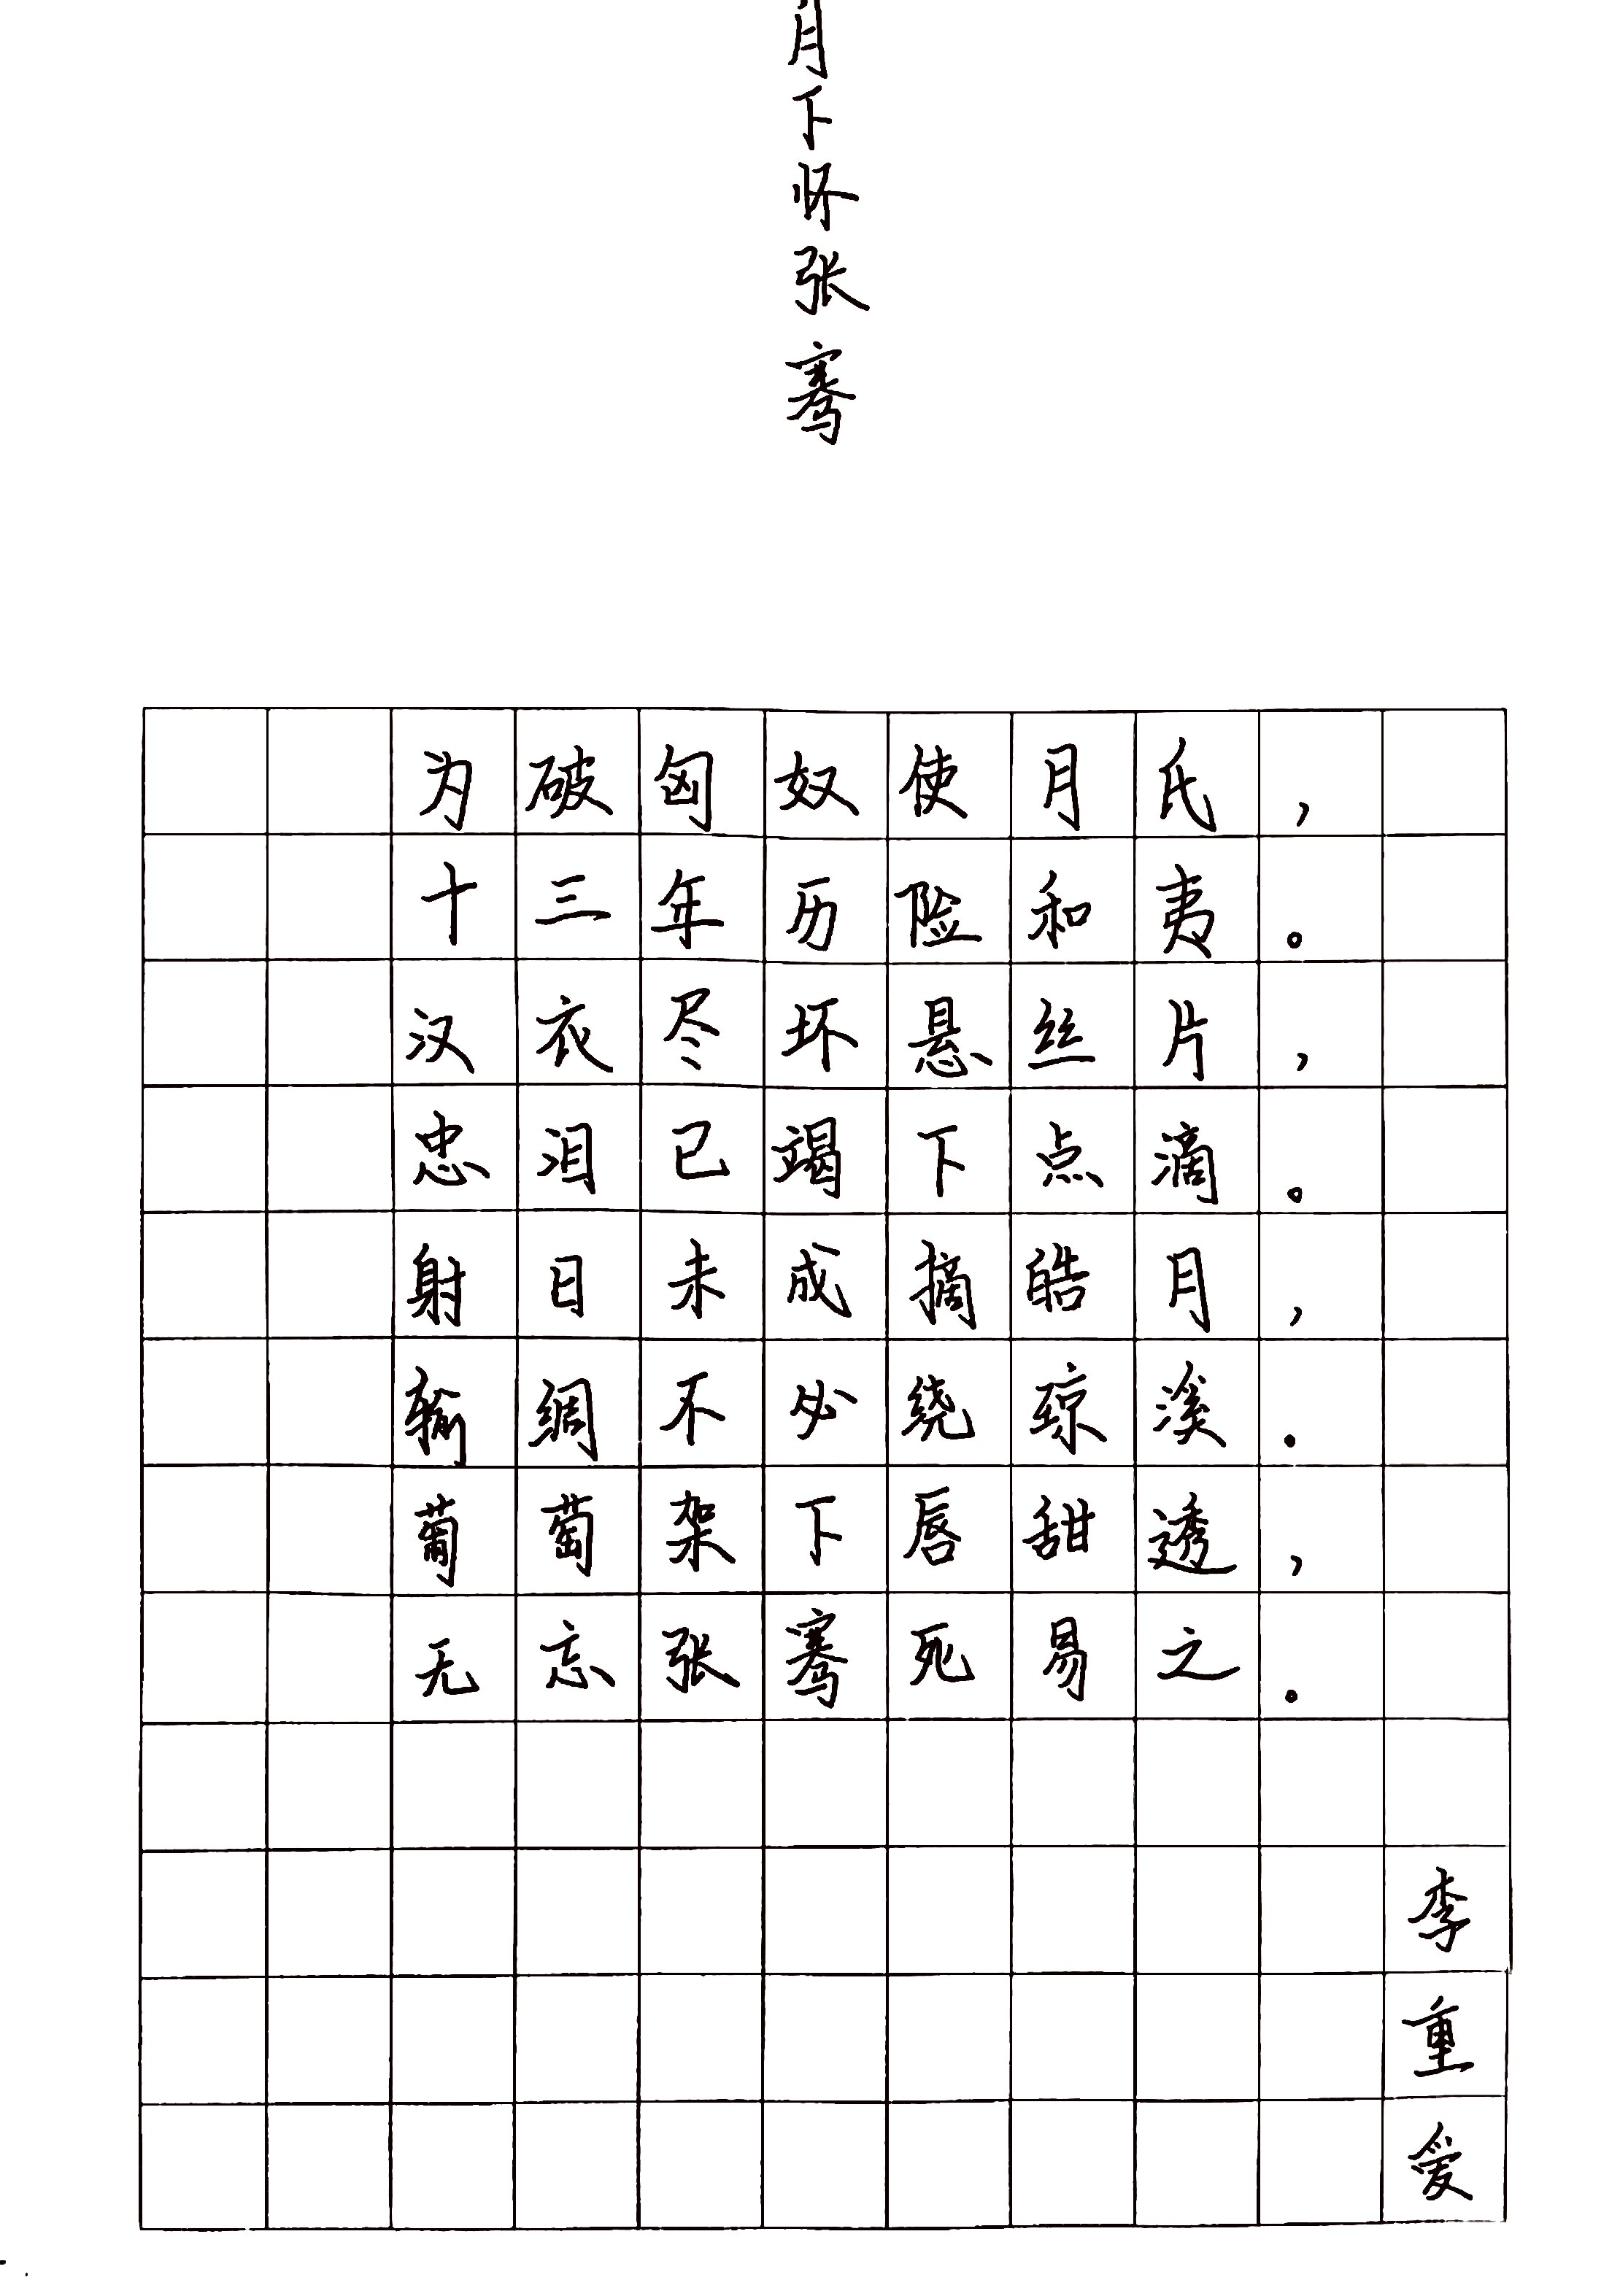 月下怀张骞
为破匈奴使月氏，
十三年历险和夷。
汉衣尽坏悬丝片，
忠泪已竭下点滴。
射日未成摘皓月，
输绸不必绕琼溪.
葡萄架下唇甜透，
无忘张骞死易之.
李重爱